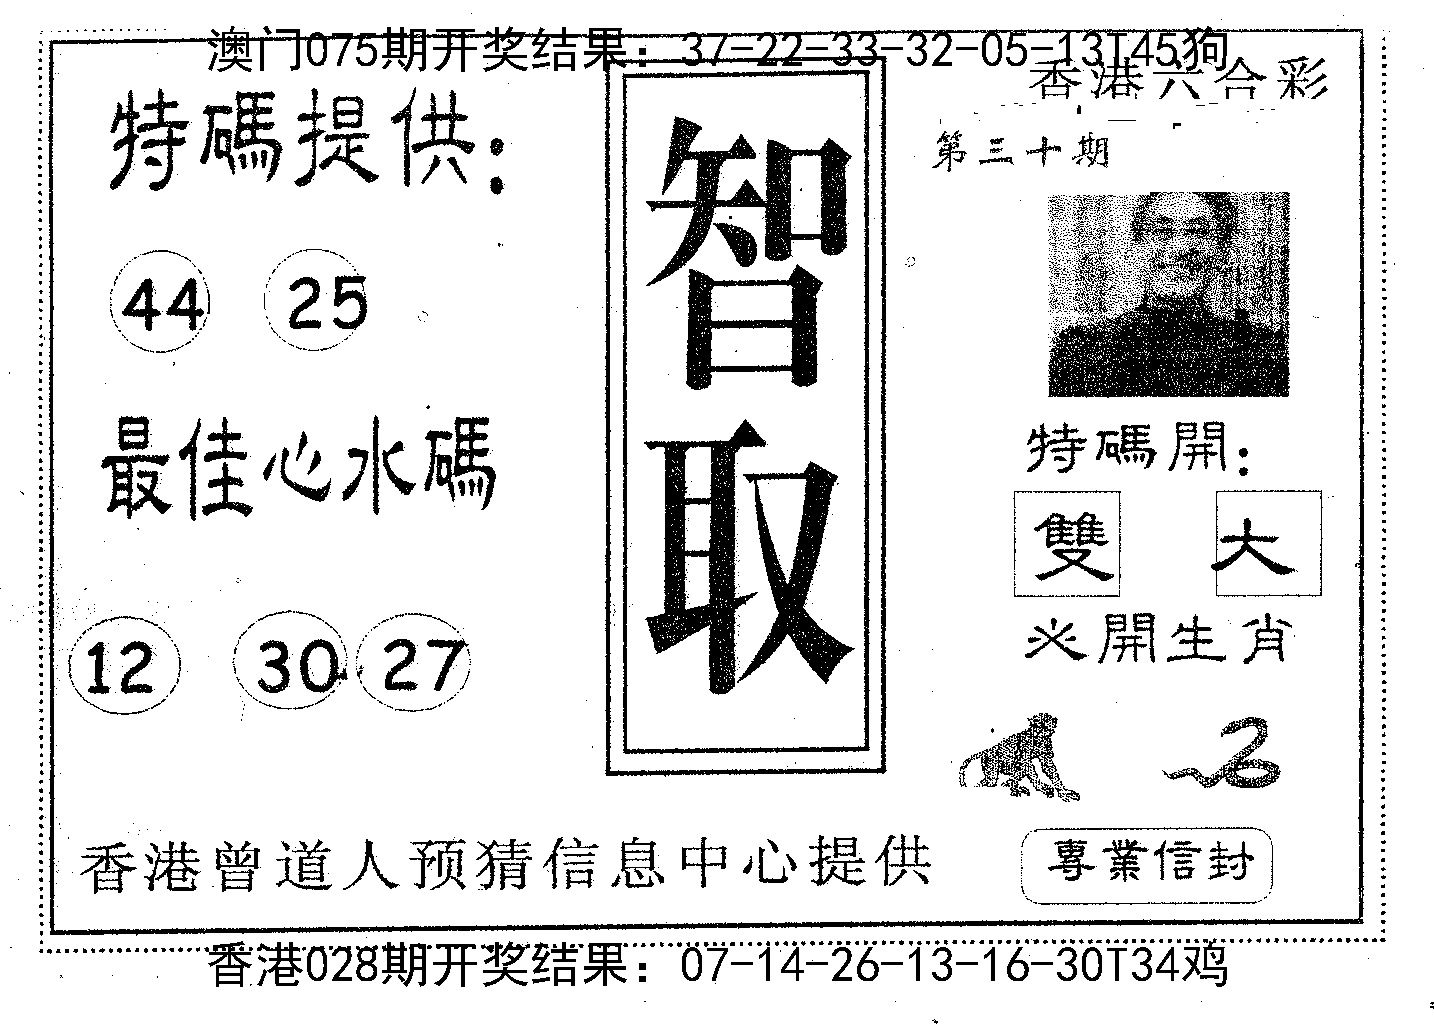 澳门075期开奖结果：37-22-33-32-05-13T45狗
香港六合彩
第三十期
特碼提供：
44 25
最佳心水碼
12 30 27
智取
特碼開：
雙 大
必開生肖
香港曾道人预猜信息中心提供
專業信封
香港028期开奖结果：07-14-26-13-16-30T34鸡